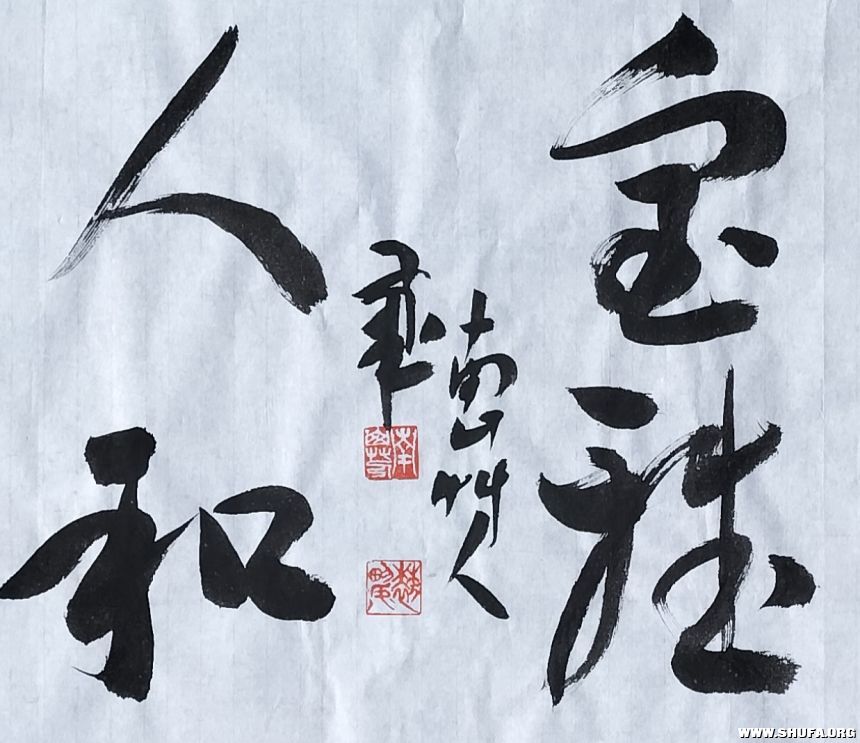 室雅
人和
南山竹人
WWW.SHUFA.ORG